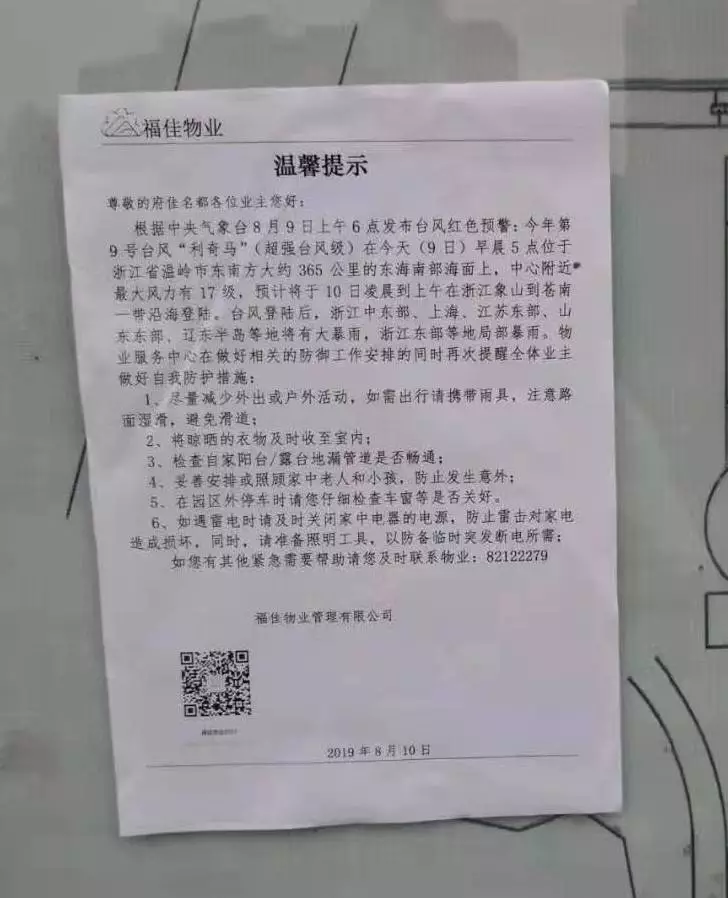 福佳物业
温馨提示
尊敬的府佳名都各位业主您好：
根据中央气象台8月9日上午6点发布台风红色预警：今年第
9号台风“利奇马”（超强台风级）在今天（9日）早晨5点位于
浙江省温岭市东南方大约365公里的东海南部海面上，中心附近
最大风力有17级，预计将于10日凌晨到上午在浙江象山到苍南
一带沿海登陆。台风登陆后，浙江中东部、上海、江苏东部、山
东东部、辽东半岛等地将有大暴雨，浙江东部等地局部暴雨。物
业服务中心在做好相关的防御工作安排的同时再次提醒全体业主
做好自我防护措施：
1、尽量减少外出或户外活动，如需出行请携带雨具，注意路
面湿滑，避免滑道；
2、将晾晒的衣物及时收至室内；
3、检查自家阳台/露台地漏管道是否畅通；
4、妥善安排或照顾家中老人和小孩，防止发生意外；
5、在园区外停车时请您仔细检查车窗等是否关好。
6、如遇雷电时请及时关闭家中电器的电源，防止雷击对家电
造成损坏，同时，请准备照明工具，以防备临时突发断电所需；
如您有其他紧急需要帮助请您及时联系物业：82122279
福佳物业管理有限公司
2019年8月10日